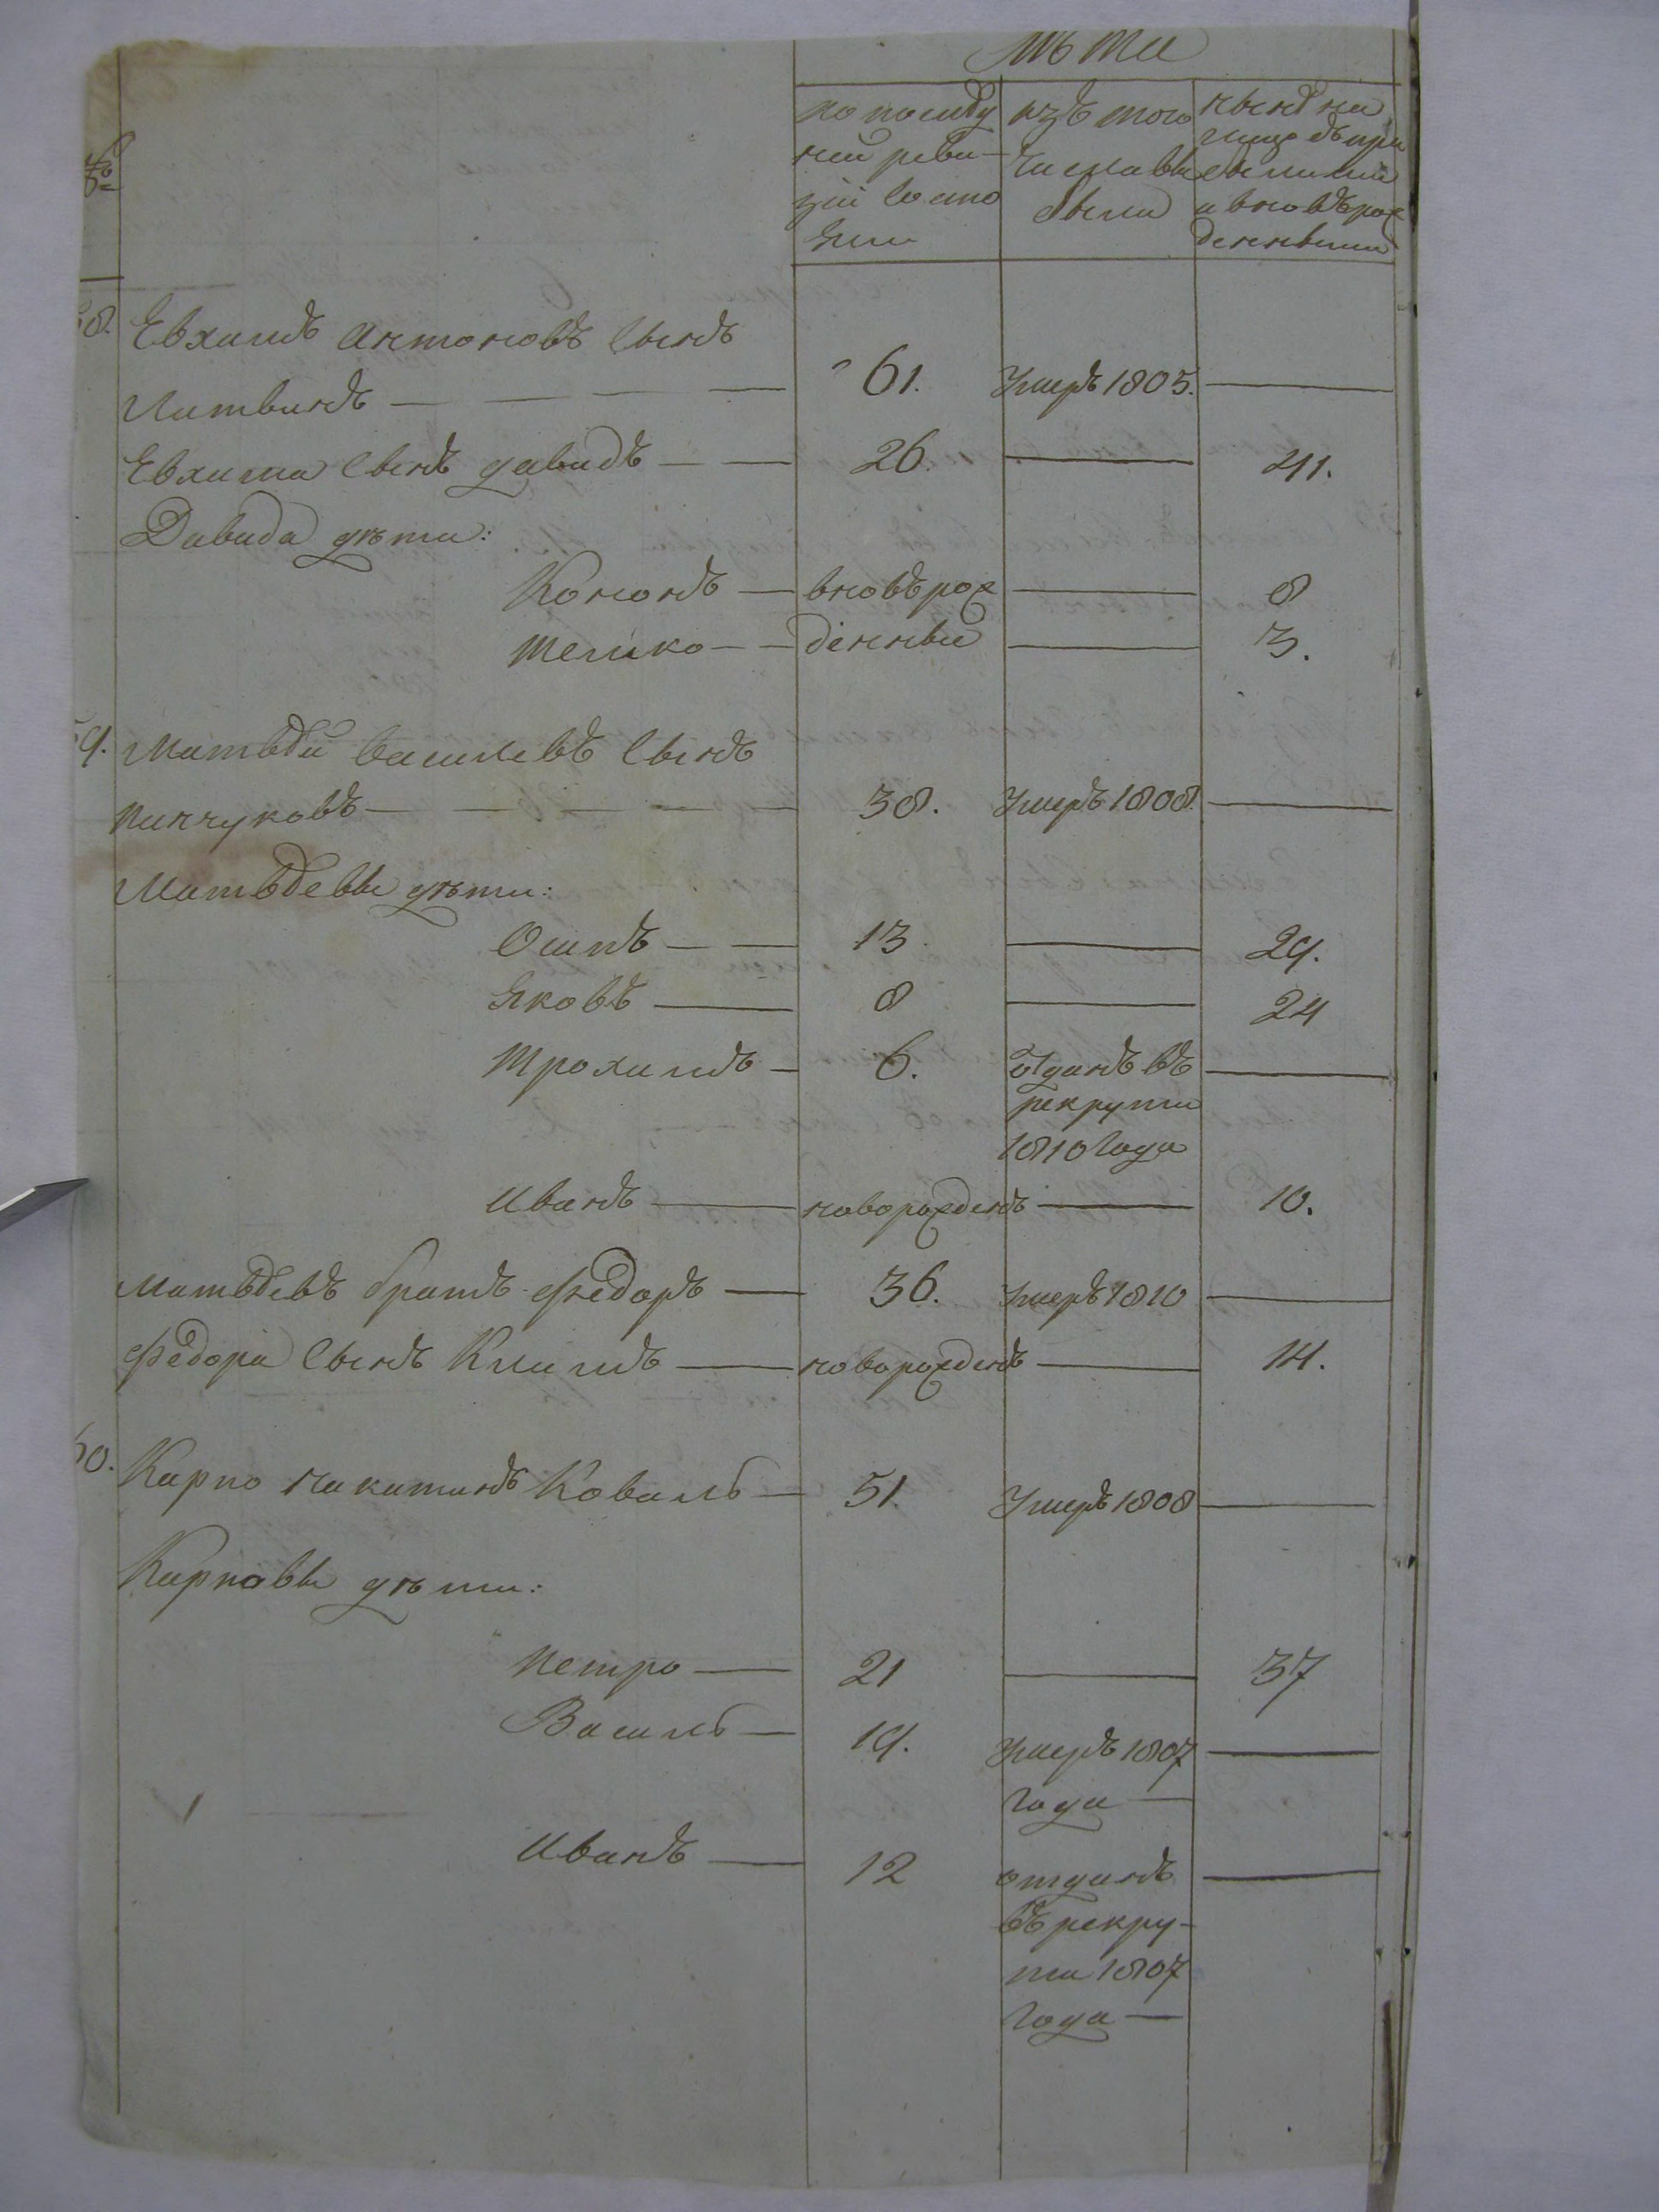 Лѣта
№
по послѣд
ней реви-
зіи состо
яли
изъ того
числа вы
были
нынѣ на
лицо съ при
былыми
и вновь рож
денными
58. Евхимъ Антоновъ сынъ
Литвинъ — 61. Умеръ 1805. —
Евхима сынъ давидъ — 26. — 41.
Давида дѣти:
Кононъ — вновь рож — 8
Телико — денные — 3.
59. Матвѣй Василевъ сынъ
Пинчуковъ — 38. Умеръ 1808. —
Матвѣевы дѣти:
Осипъ — 13. — 29.
Яковъ — 8 — 24
Трохимъ — 6. Отданъ въ —
рекруты
1810 года
Иванъ — новорожденъ — 10.
Матвѣевъ братъ Федоръ — 36. Умеръ 1810 —
Федора сынъ Климъ — новорожденъ — 14.
60. Карпо Никитинъ Коваль — 51. Умеръ 1808 —
Карповы дѣти:
Петро — 21 — 37
Василь — 19. Умеръ 1807 —
года —
Иванъ — 12 отданъ —
въ рекру-
ты 1807
года —